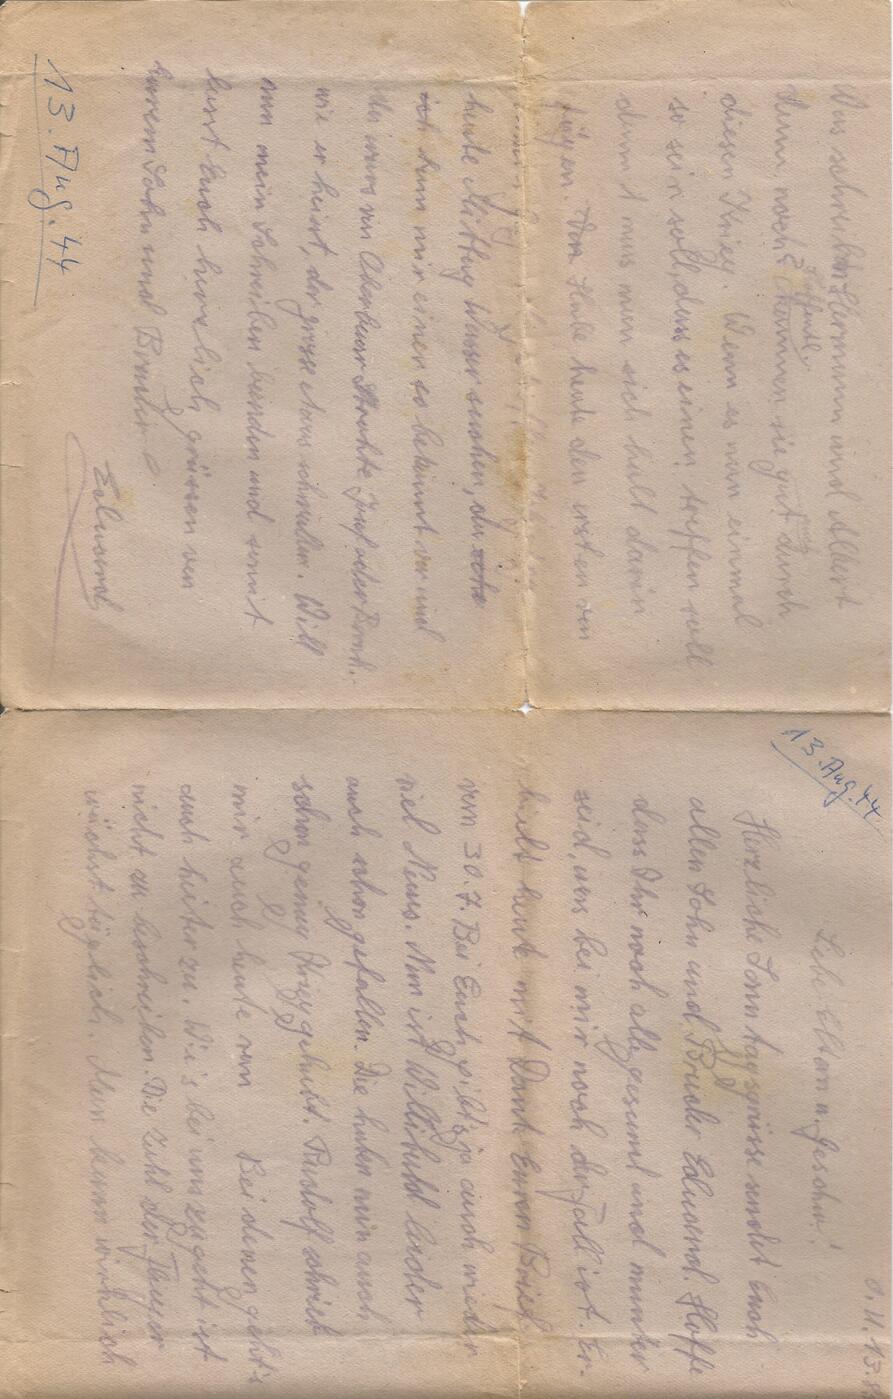 13. Aug. 44
O. U. 13.8.
Liebe Eltern u. Geschw.!
Herzliche Sonntagsgrüsse sendet Euch
allen Sohn und Bruder Eduard. Hoffe
dass Ihr noch alle gesund und munter
seid, was bei mir noch der Fall ist. Er-
hielt heute mit Dank Euren Brief
vom 30.7. Bei Euch gibt's ja auch wieder
viel Neues. Nun ist Willibald leider
auch schon gefallen. Die haben nun auch
schon genug Krieg gehabt. Rudolf schrieb
mir auch heute von Bei denen geht's
auch heiter zu. Wie's bei uns zugeht ist
nicht zu beschreiben. Die Zahl der Flieger
wächst täglich. Man kann wirklich
Was schreiben Hermann und Albert
denn noch? Hoffentl. kommen sie gut durch
diesen Krieg. Wenn es nun einmal
so sein soll, dass es einen treffen soll
dann muss man sich halt darin
fügen. Habe heute den ersten von
heute Mittag Wasser
ich kam mir einer so bekannt vor und
da wars von
wie er heisst, der grosse Mann Will
nun mein Schreiben beenden und sonst
seit Euch herzlich grüssen von
Eurem Sohn und Bruder
Eduard
13. Aug. 44